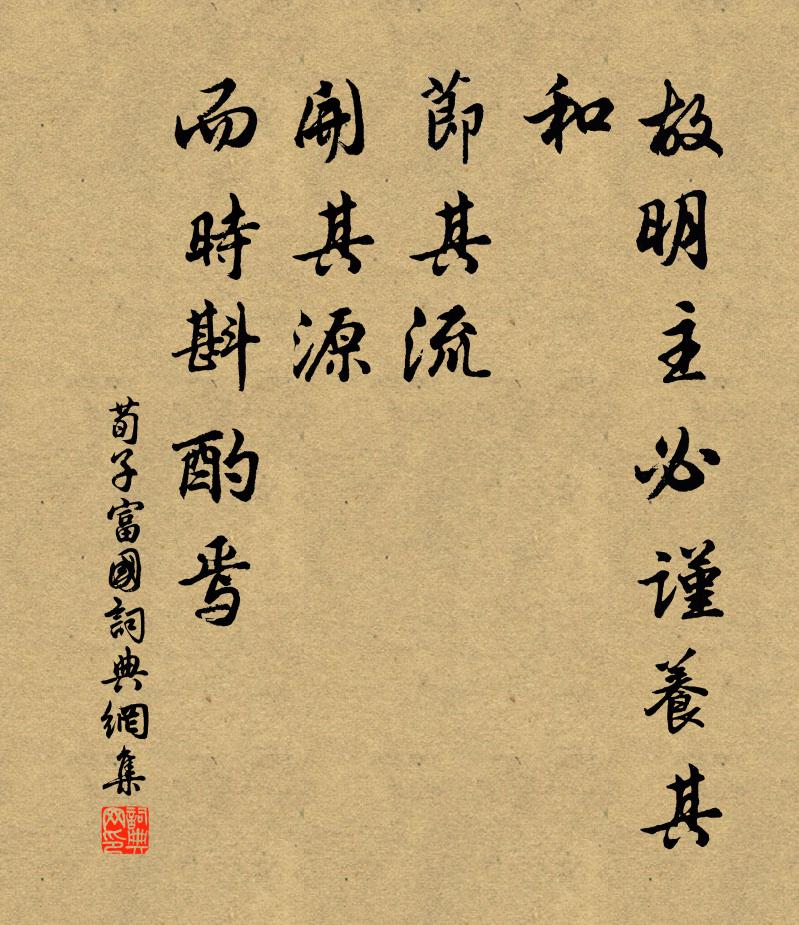 故明主必謹養其
和
節其流
開其源
而時斟酌焉
荀子富國詞典網集
詞典网印